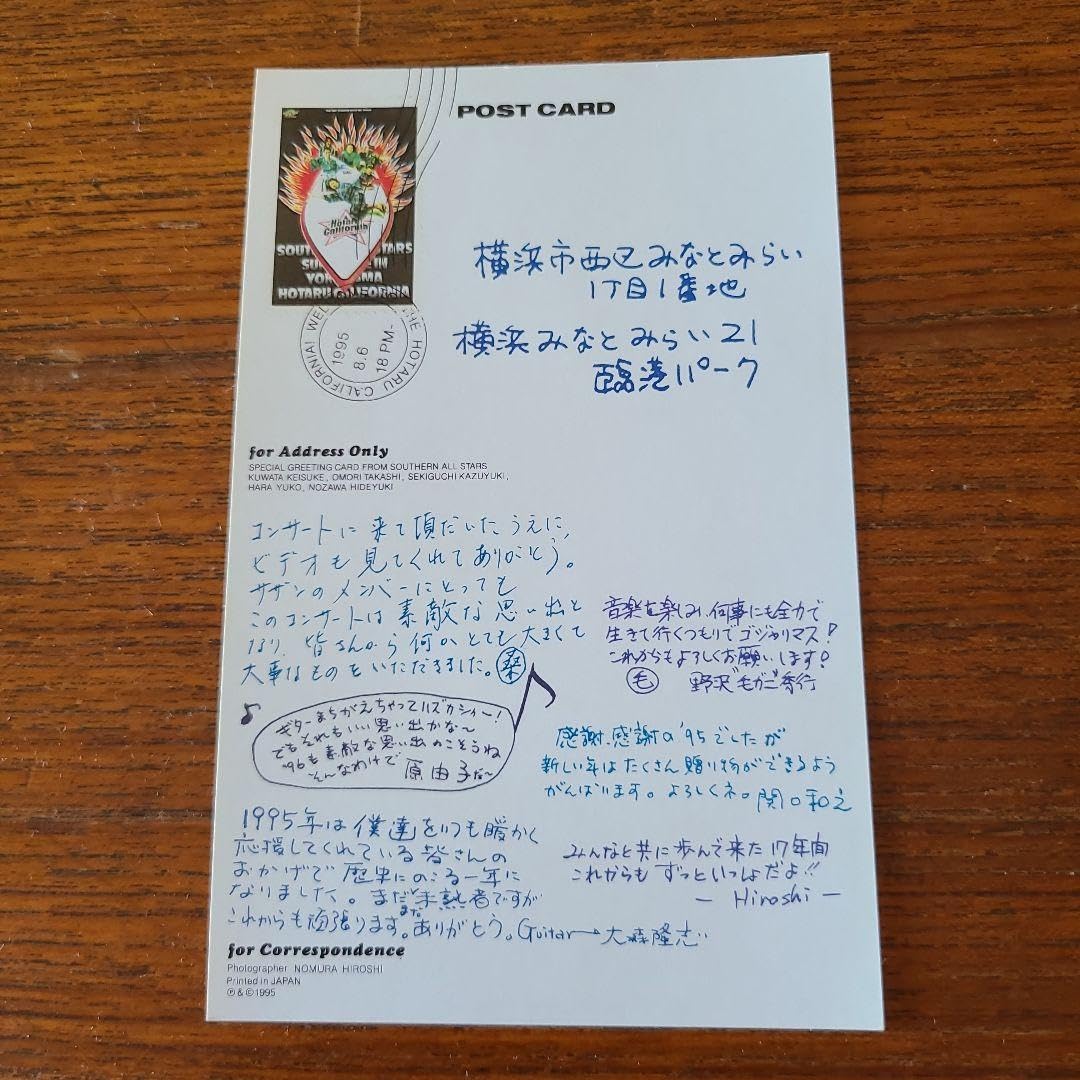 POST CARD
Hotaru
California
SOUTHERN ALL STARS
IN
HOTARU CALIFORNIA
CALIFORNIA! WEL
THE HOTARU
1995
8.6
18 PM.
横浜市西区みなとみらい
1丁目1番地
横浜みなとみらい21
臨港パーク
for Address Only
SPECIAL GREETING CARD FROM SOUTHERN ALL STARS
KUWATA KEISUKE, OMORI TAKASHI, SEKIGUCHI KAZUYUKI,
HARA YUKO, NOZAWA HIDEYUKI
コンサートに来て頂だいたうえに、
ビデオも見てくれてありがとう。
サザンのメンバーにとっても
このコンサートは素敵な思い出と
なり、皆さんから何かとても大きくて
大事なものをいただきました。桑
音楽を楽しみ、何事にも全力で
生きて行くつもりでゴジャリマス!
これからもよろしくお願いします!
毛 野沢"毛ガニ"秀行
ギターまちがえちゃってハズカシィー!
でもそれもいい思い出かな〜
'96も素敵な思い出のこそうね
そんなわけで 原由子だ〜
感謝、感謝の'95でしたが
新しい年はたくさん贈り物ができるよう
がんばります。よろしくネ。関口和之
1995年は僕達をいつも暖かく
応援してくれている皆さんの
おかげで歴史にのこる一年に
なりました。まだまだ未熟者ですが
これからも頑張ります。ありがとう。Guitar→大森隆志
みんなと共に歩んで来た17年間
これからもずっといっしょだよ!!
— Hiroshi —
for Correspondence
Photographer NOMURA HIROSHI
Printed in JAPAN
Ⓟ & ©1995